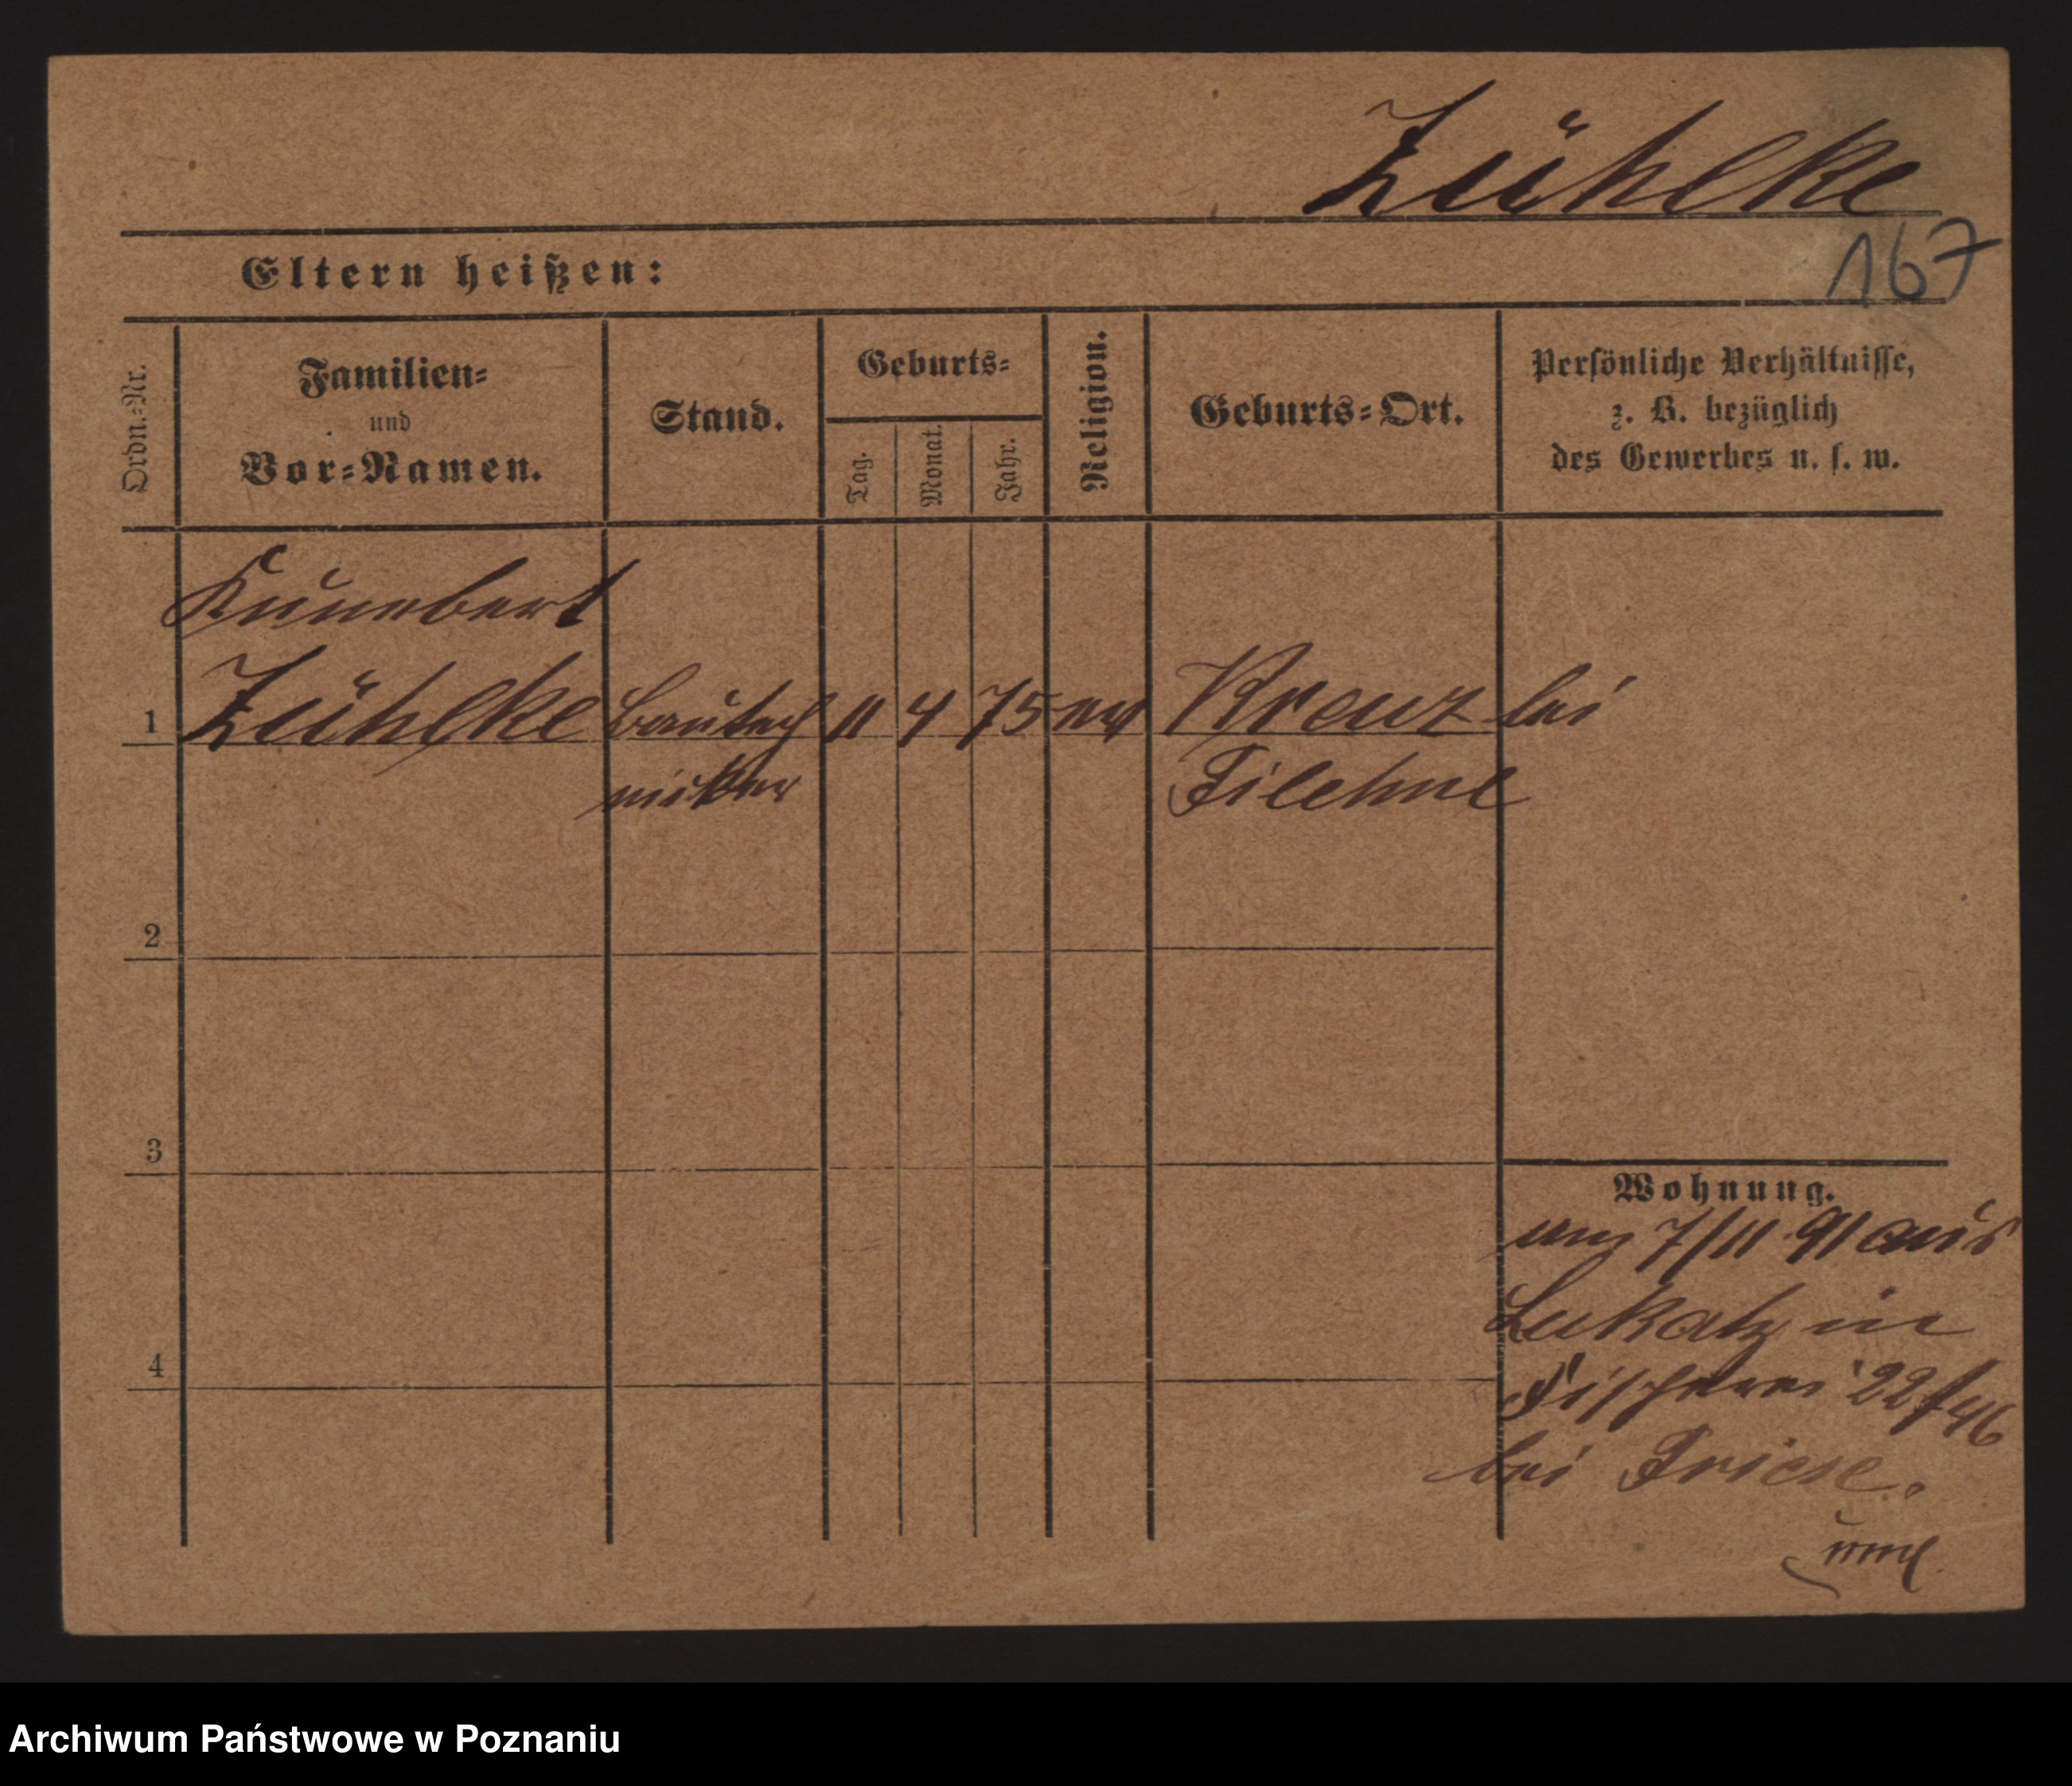 Zühlke
167
Eltern heißen:
Ordn.=Nr.
Familien=
und
Vor=Namen.
Stand.
Geburts=
Tag.
Monat.
Jahr.
Religion.
Geburts=Ort.
Persönliche Verhältnisse,
z. B. bezüglich
des Gewerbes u. s. w.
1
Zühlke
Bautech
niker
11 4 75 ev
Kreuz bei
Filehne
2
3
4
Wohnung.
am 7/11 91 aus
Lukatz in
Fischerei 22/46
bei Friese.
Archiwum Państwowe w Poznaniu